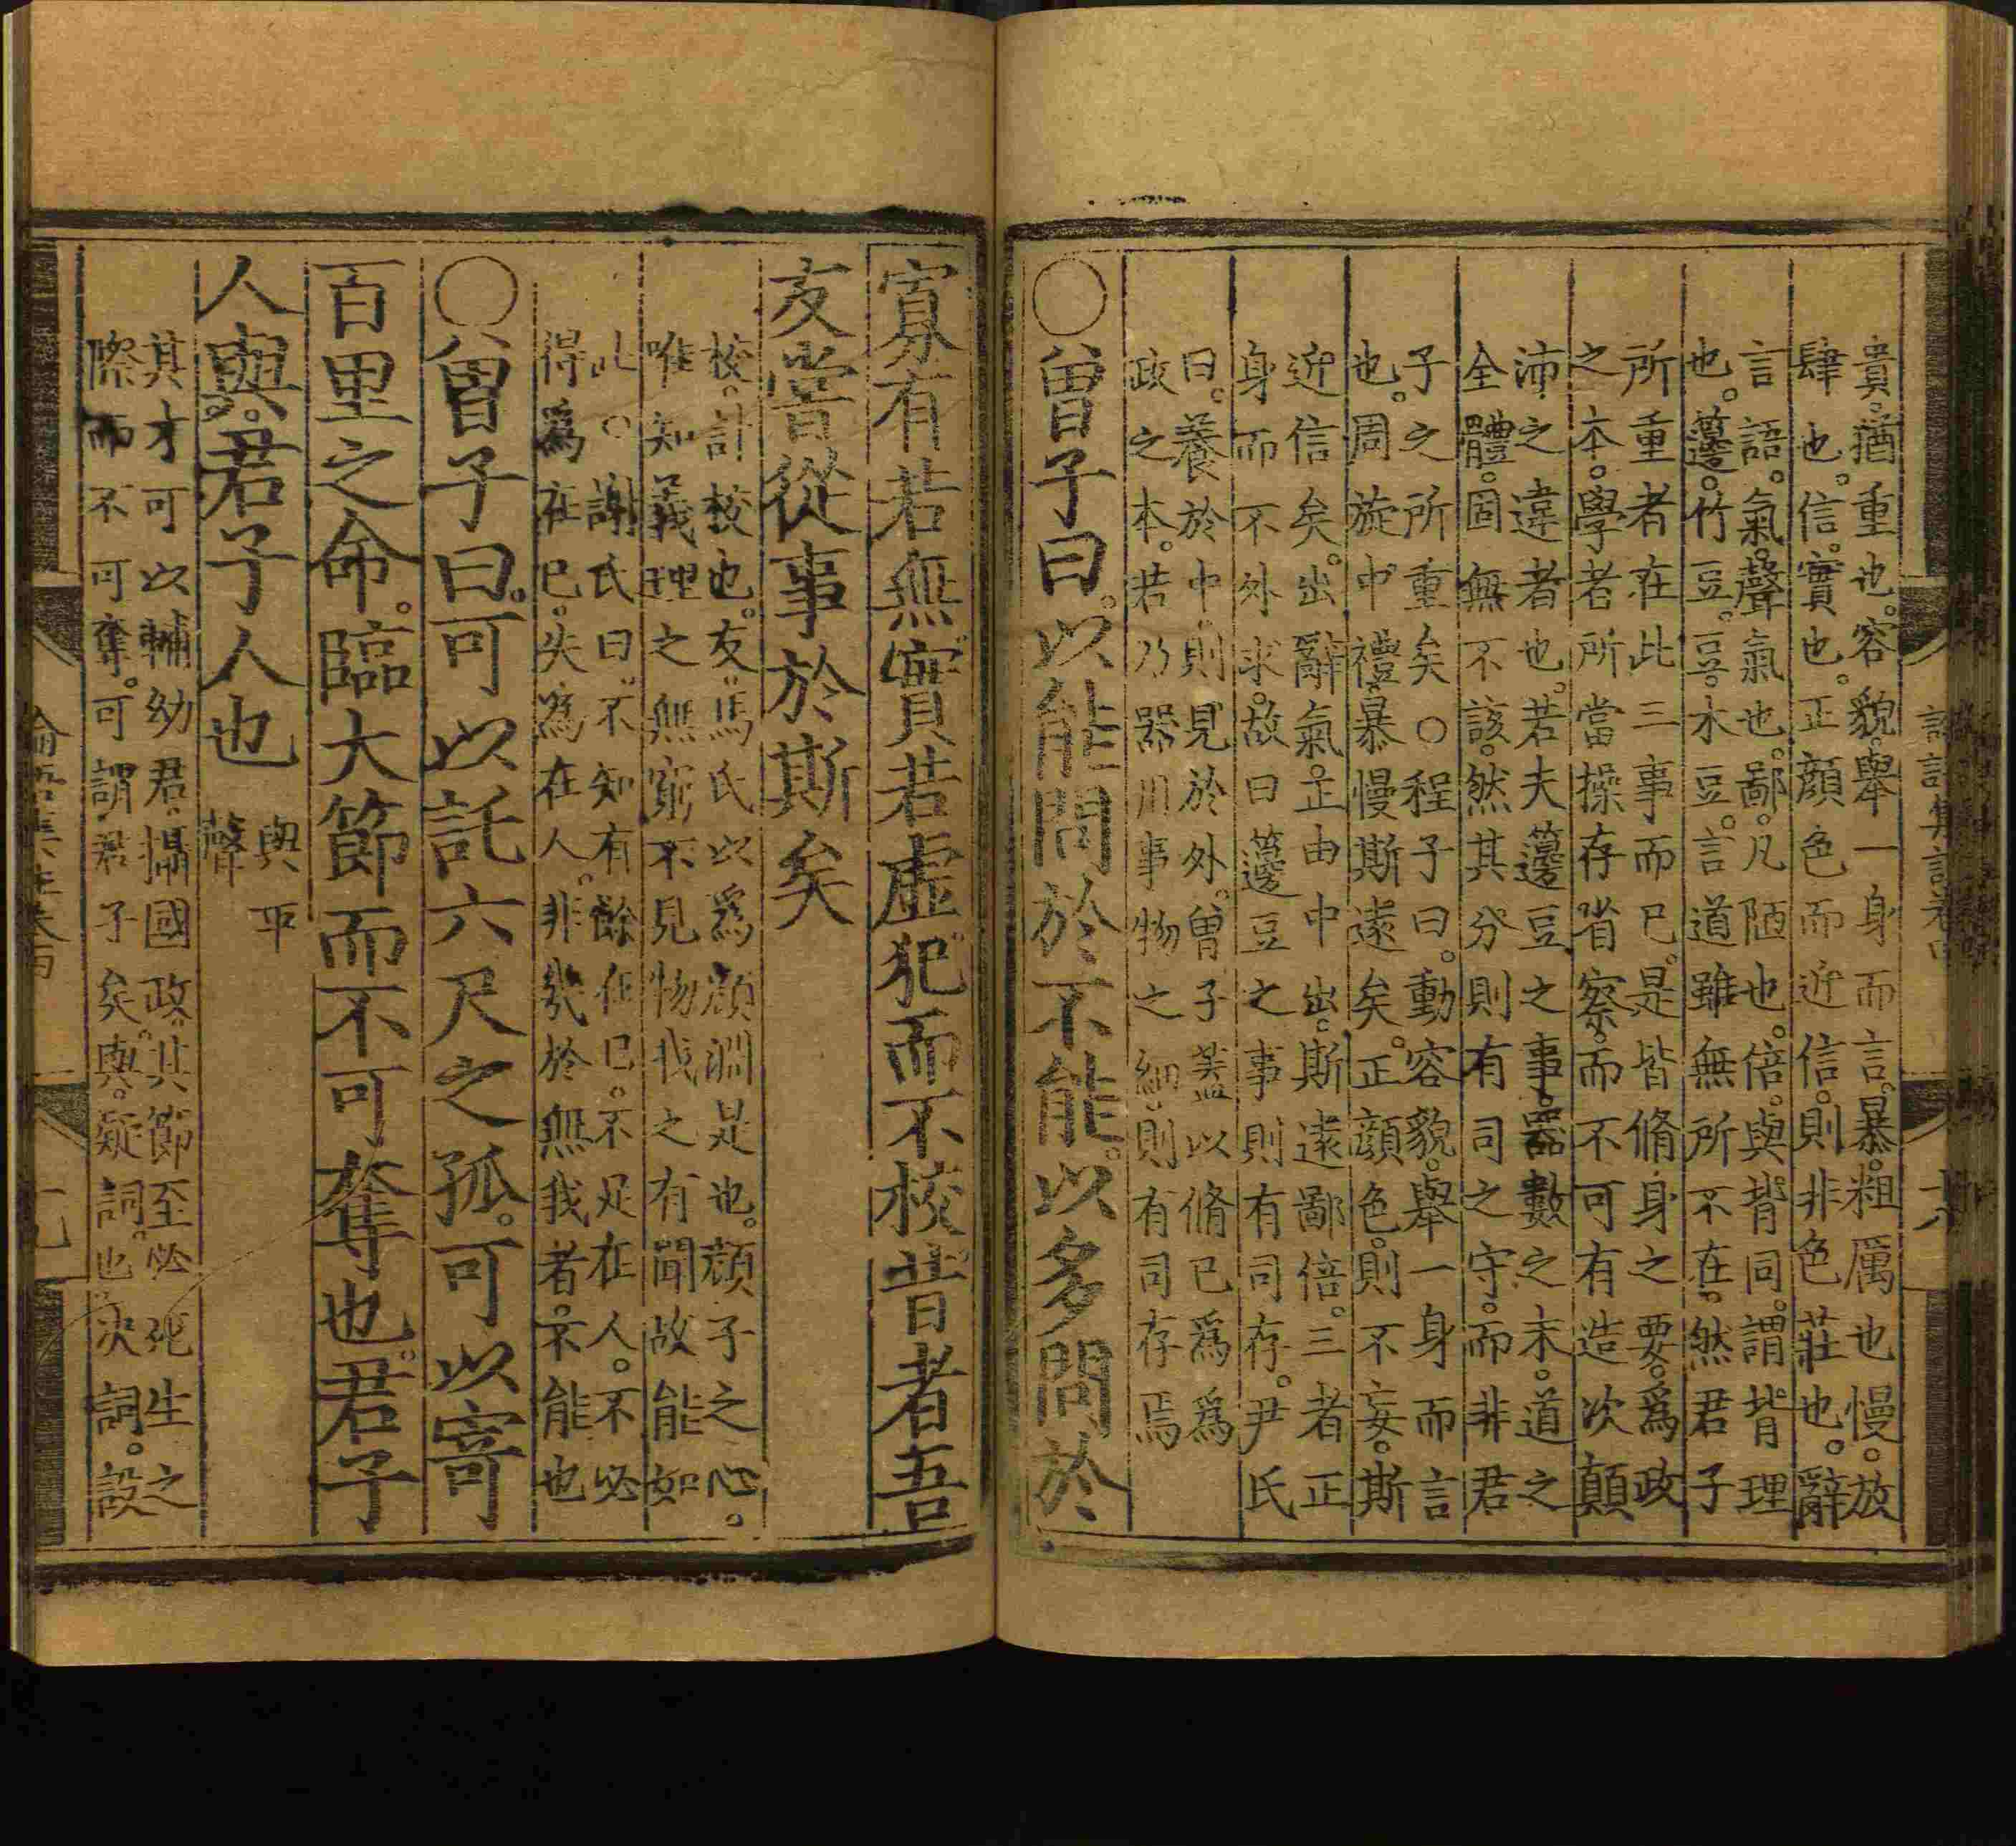 貴。猶重也。容貌。舉一身而言。暴。粗厲也慢。放
肆也。信。實也。正顔色而近信。則非色莊也。辭
言語。氣。聲氣也。鄙。凡陋也。倍。與背同。謂背理
也。籩。竹豆。豆。木豆。言道雖無所不在。然君子
所重者在此三事而已。是皆脩身之要。爲政
之本。學者所當操存省察。而不可有造次顛
沛之違者也。若夫籩豆之事。器數之末。道之
全體。固無不該。然其分則有司之守。而非君
子之所重矣○程子曰。動容貌。舉一身而言
也。周旋中禮。暴慢斯遠矣。正顔色。則不妄。斯
近信矣。出辭氣。正由中出。斯遠鄙倍。三者正
身而不外求。故曰籩豆之事則有司存。尹氏
曰。養於中。則見於外。曾子蓋以脩己爲爲
政之本。若乃器用事物之細。則有司存焉
○曾子曰。以能問於不能。以多問於
寡有若無實若虛犯而不校昔者吾
友嘗從事於斯矣
校。計校也。友。馬氏以爲顔淵是也。顔子之心。
唯知義理之無窮不見物我之有閒故能如
此○謝氏曰。不知有餘在己。不足在人。不必
得爲在己。失爲在人。非幾於無我者。不能也
○曾子曰。可以託六尺之孤。可以寄
百里之命。臨大節而不可奪也。君子
人與。君子人也
與平
聲
其才可以輔幼君。攝國政。其節至於死生之
際而不可奪。可謂君子矣。與。疑詞。也決詞。設
論語集註卷四
十九
論語集註卷四